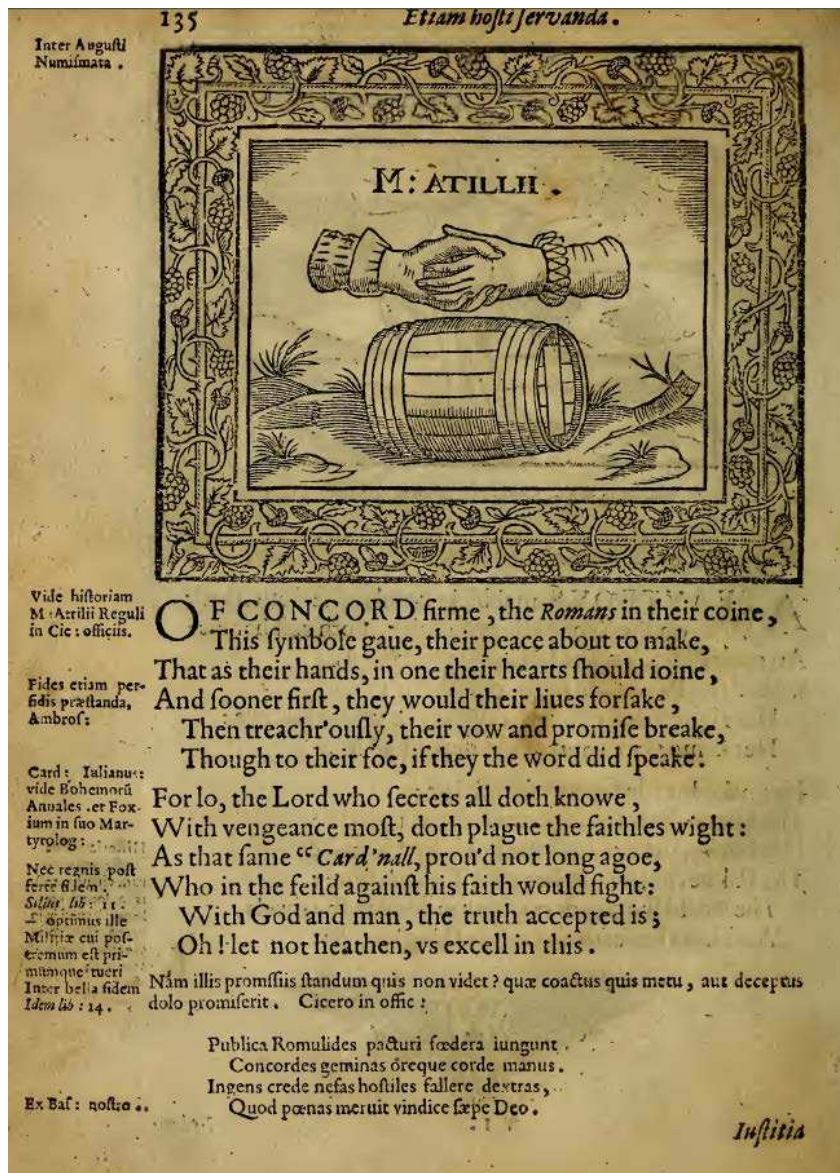 135 Etiam hosti servanda.
Inter Augusti
Numismata.
M: ATILLII.
Vide historiam
M. Attilii Reguli
in Cic: officiis.
Fides etiam per-
fidis præstanda,
Ambros:
Card: Iulianus:
vide Bohemorũ
Annales .et Fox-
ium in suo Mar-
tyrolog:
Nec regnis post
ferre fidem.
Silius lib: 11.
— optimus ille
Militiæ cui pos-
tremum est pri-
mumque tueri
Inter bella fidem
Idem lib: 14.
OF CONCORD firme, the Romans in their coine,
This symbole gaue, their peace about to make,
That as their hands, in one their hearts should ioine,
And sooner first, they would their liues forsake,
Then treachr'ously, their vow and promise breake,
Though to their foe, if they the word did speake:
For lo, the Lord who secrets all doth knowe,
With vengeance most, doth plague the faithles wight:
As that same cc Card'nall, prou'd not long agoe,
Who in the feild against his faith would fight:
With God and man, the truth accepted is;
Oh! let not heathen, vs excell in this.
Nam illis promssiis standum quis non videt? quæ coactus quis metu, aut deceptus
dolo promiserit. Cicero in offic:
Publica Romulides pacturi fœdera iungunt
Concordes geminas óreque corde manus.
Ingens crede nefas hostiles fallere dextras,
Quod pœnas meruit vindice sæpe Deo.
Ex Bas: nostro..
Iustitia